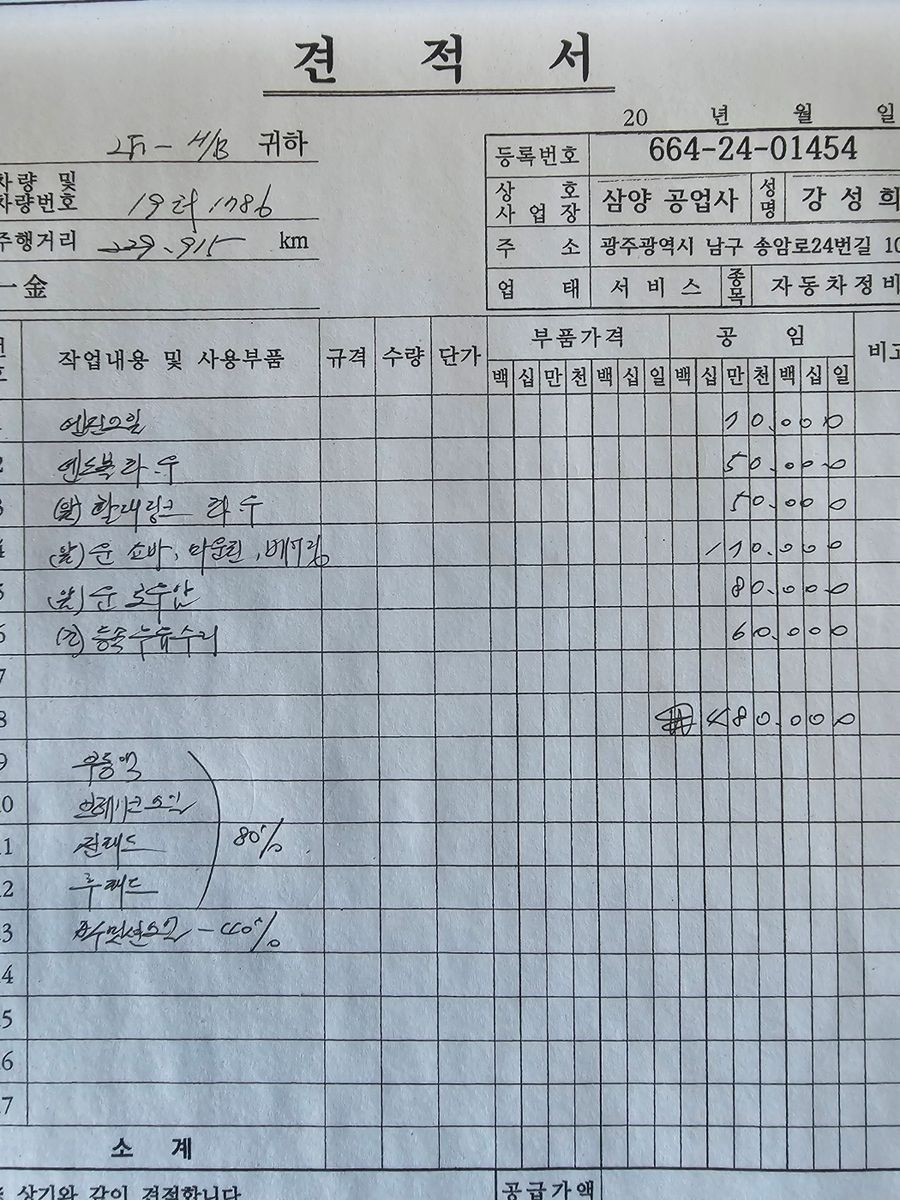 견 적 서
20 년 월 일
귀하
등록번호 664-24-01454
차량 및
차량번호 19더 1786
상 호
사 업 장 삼양 공업사 성명 강 성 희
주행거리 229.915 km
주 소 광주광역시 남구 송암로24번길 10
一金
업 태 서 비 스 종목 자동차정비
작업내용 및 사용부품 규격 수량 단가 부품가격 공 임 비고
백 십 만 천 백 십 일 백 십 만 천 백 십 일
엔진오일 70.000
엔도볼 라.우 50.000
(앞) 활대링크 라 우 50.000
(앞) 운 쇼바, 마운틴, 베아링 170.000
(앞) 운 로우암 80.000
(조) 등속누유수리 60.000
7
8 ₩480.000
9 부동액
10 브레이크오일
11 전패드 80%
12 후패드
13 오일 - 40%
14
15
16
17
소 계
상기와 같이 견적합니다
공급가액